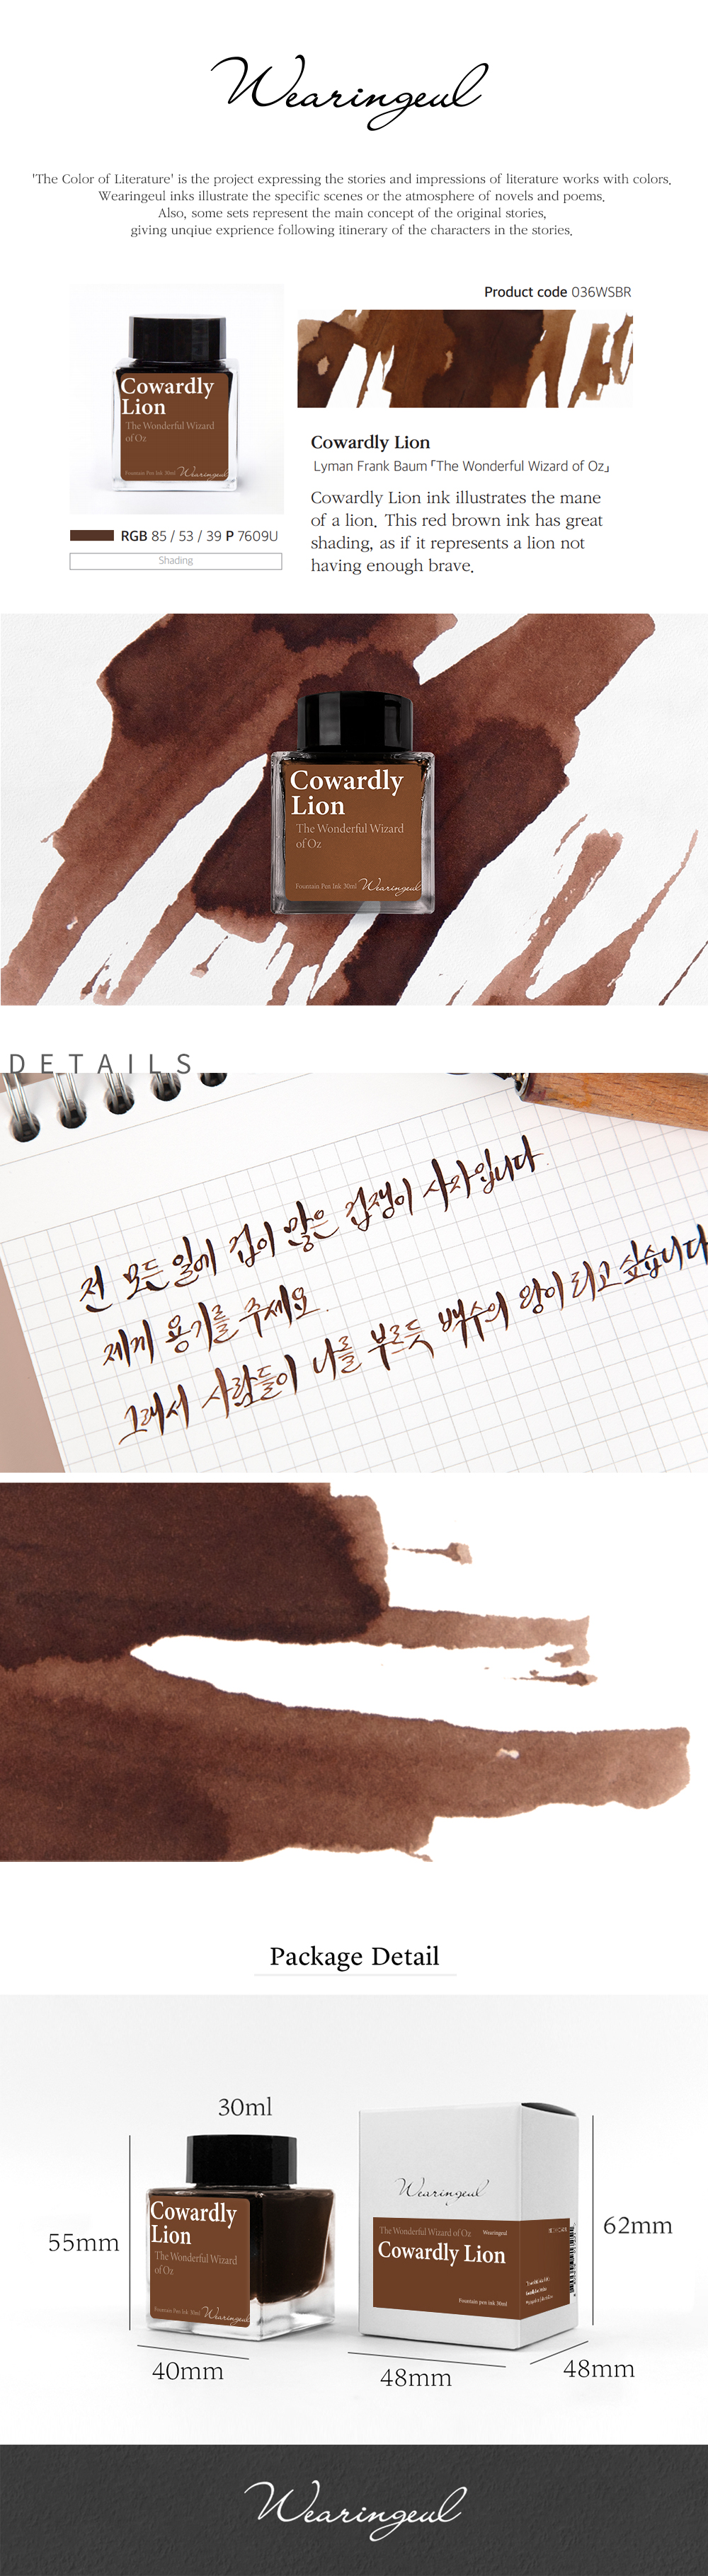 Wearingeul
'The Color of Literature' is the project expressing the stories and impressions of literature works with colors.
Wearingeul inks illustrate the specific scenes or the atmosphere of novels and poems.
Also, some sets represent the main concept of the original stories,
giving unqiue exprience following itinerary of the characters in the stories.
Product code 036WSBR
Cowardly
Lion
The Wonderful Wizard
of Oz
Fountain Pen Ink 30ml Wearingeul
RGB 85 / 53 / 39 P 7609U
Shading
Cowardly Lion
Lyman Frank Baum「The Wonderful Wizard of Oz」
Cowardly Lion ink illustrates the mane
of a lion. This red brown ink has great
shading, as if it represents a lion not
having enough brave.
Cowardly
Lion
The Wonderful Wizard
of Oz
Fountain Pen Ink 30ml Wearingeul
DETAILS
전 모든 일에 겁이 많은 겁쟁이 사자입니다.
제게 용기를 주세요.
그래서 사람들이 나를 부르듯 백수의 왕이 되고 싶습니다
Package Detail
30ml
55mm
40mm
Cowardly
Lion
The Wonderful Wizard
of Oz
Fountain Pen Ink 30ml Wearingeul
Wearingeul
The Wonderful Wizard of Oz Wearingeul
Cowardly Lion
Fountain pen ink 30ml
62mm
48mm
48mm
Wearingeul